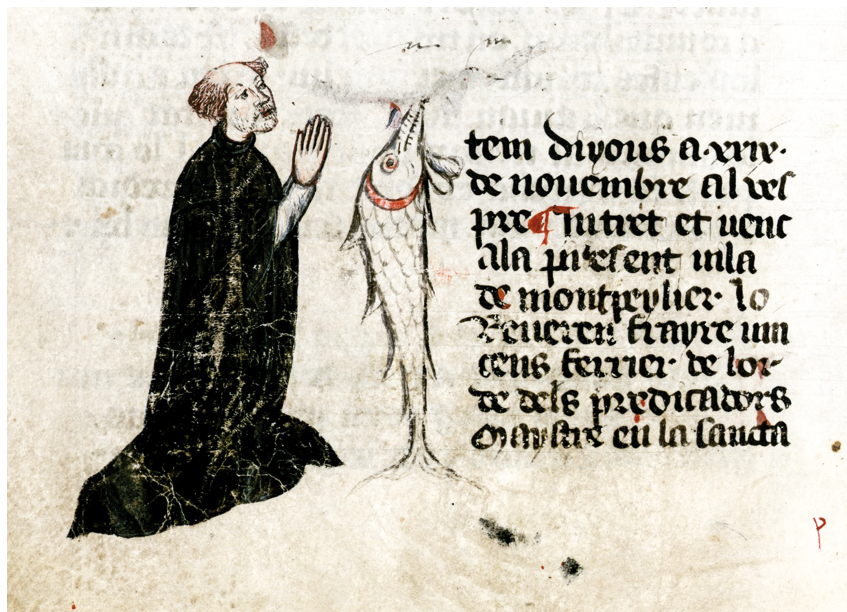 tem diuous a·xxix·
de nouembre al ves
pre ¶ Intret et uenc
ala present uila
de montpeylier· lo
Reueren frayre uin
cens ferrier· de lor
de dels predicadors
Maystre en la sancta
p